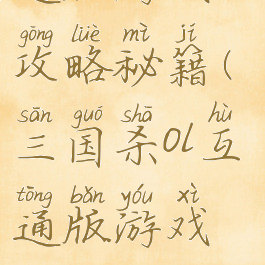 gōng lüè mì jí
攻略秘籍(
sān guó shā hù
三国杀ol互
tōng bǎn yóu xì
通版游戏